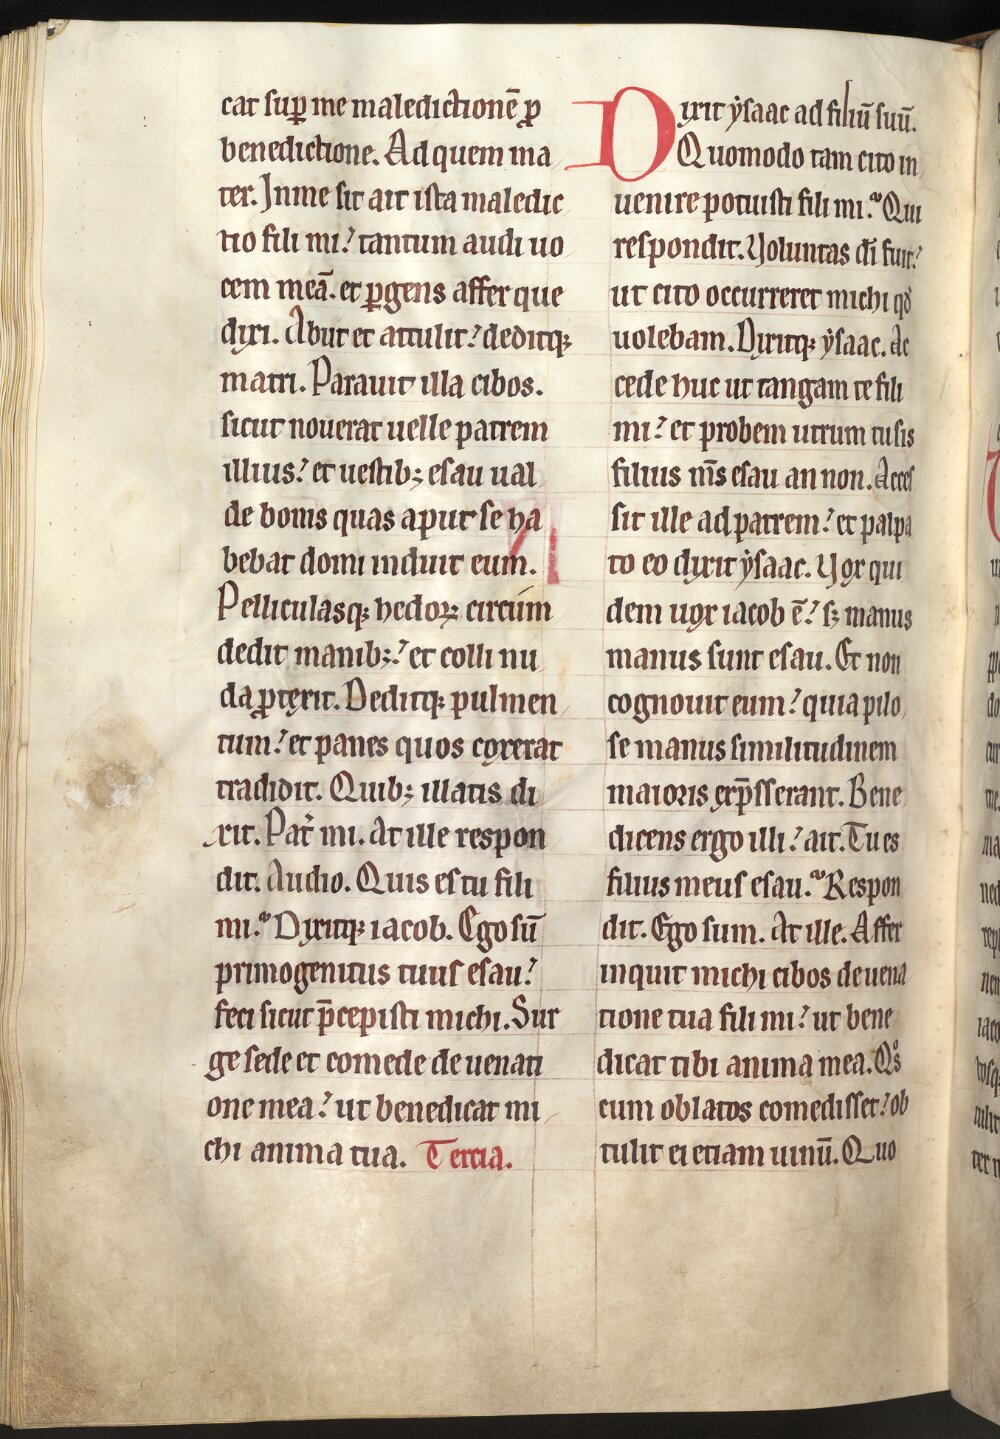 cat suꝑ me maledictionē ꝓ
benedictione. Ad quem ma
ter. In me sit ait ista maledic
tio fili mi? tantum audi uo
cem meā. et ꝑgens affer que
dixi. Abiit et attulit? deditqꝫ
matri. Parauit illa cibos.
sicut nouerat uelle patrem
illius? et uestibꝫ esau ual
de bonis quas aput se ha
bebat domi induit eum.
Pelliculasqꝫ hedoꝝ circum
dedit manibꝫ? et colli nu
da ꝓtexit. Deditqꝫ pulmen
tum? et panes quos coxerat
tradidit. Quibꝫ illatis di
xit. Pat̄ mi. At ille respon
dit. Audio. Quis es tu fili
mi? Dixitqꝫ iacob. Ego sū
primogenitus tuus esau?
feci sicut p̄cepisti michi. Sur
ge sede et comede de uenati
one mea? ut benedicat mi
chi anima tua. Tercia.
Dixit ẏsaac ad filiū suū.
Quomodo tam cito in
uenire potuisti fili mi? Qui
respondit. Voluntas dī fuit?
ut cito occurreret michi qd̓
uolebam. Dixitqꝫ ẏsaac. Ac
cede huc ut tangam te fili
mi? et probem utrum tu sis
filius m̄s esau an non. Acces
sit ille ad patrem? et palpa
to eo dixit ẏsaac. Vox qui
dem uox iacob ē? sꝫ manus
manus sunt esau. Et non
cognouit eum? quia pilo
se manus similitudinem
maioris exp̄sserant. Bene
dicens ergo illi? ait. Tu es
filius meus esau? Respon
dit. Ego sum. At ille. Affer
inquit michi cibos de uena
tione tua fili mi? ut bene
dicat tibi anima mea. Qͦs
cum oblatos comedisset? ob
tulit ei etiam uinū. Quo